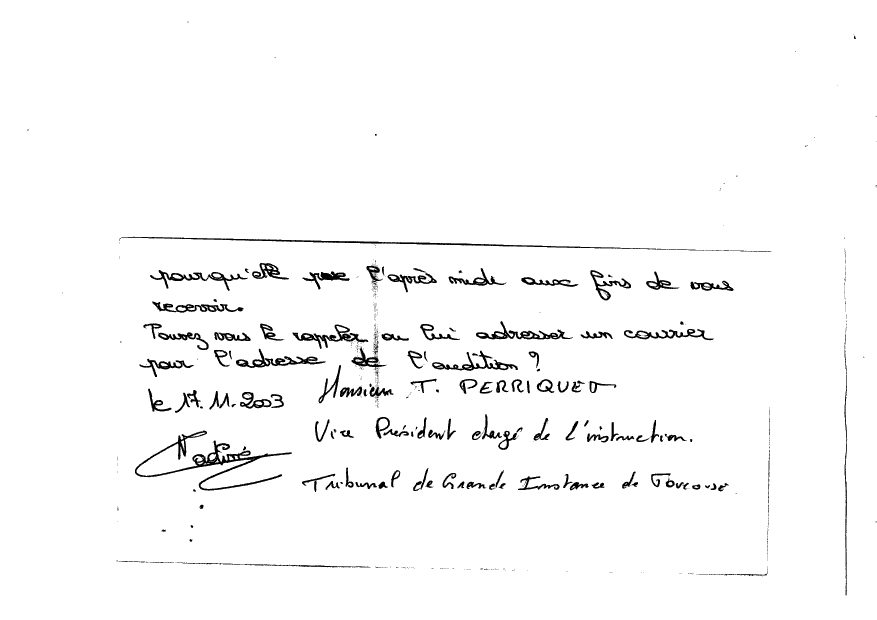 pourqu'elle l'après midi aux fins de vous
recevoir.
Pouvez vous le rappeler ou lui adresser un courrier
pour l'adresse de l'audition ?
le 17.11.2003 Monsieur T. PERRIQUET
Vice Président chargé de l'instruction.
Tribunal de Grande Instance de Toulouse